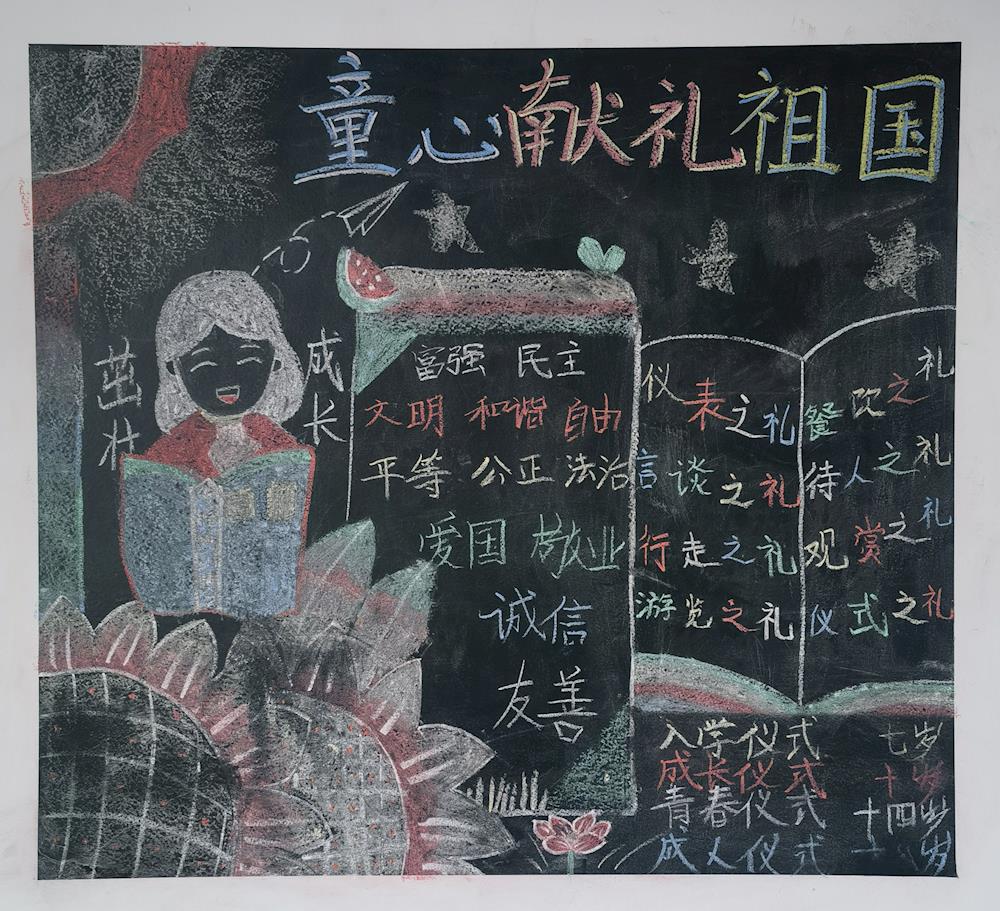 童心献礼祖国
茁壮
成长
富强 民主
文明 和谐 自由
平等 公正 法治
爱国 敬业
诚信
友善
仪表之礼
言谈之礼
行走之礼
游览之礼
餐饮之礼
待人之礼
观赏之礼
仪式之礼
入学仪式 七岁
成长仪式 十岁
青春仪式 十四岁
成人仪式 岁